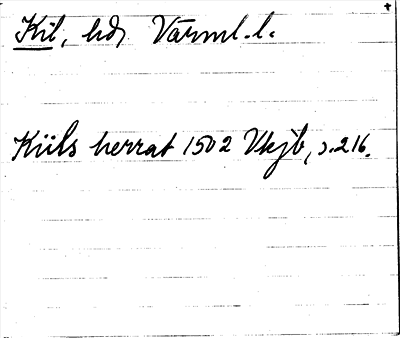 Kil, hd, Värml. l.
Kiils herrat 1502 Vkjb, s. 216.